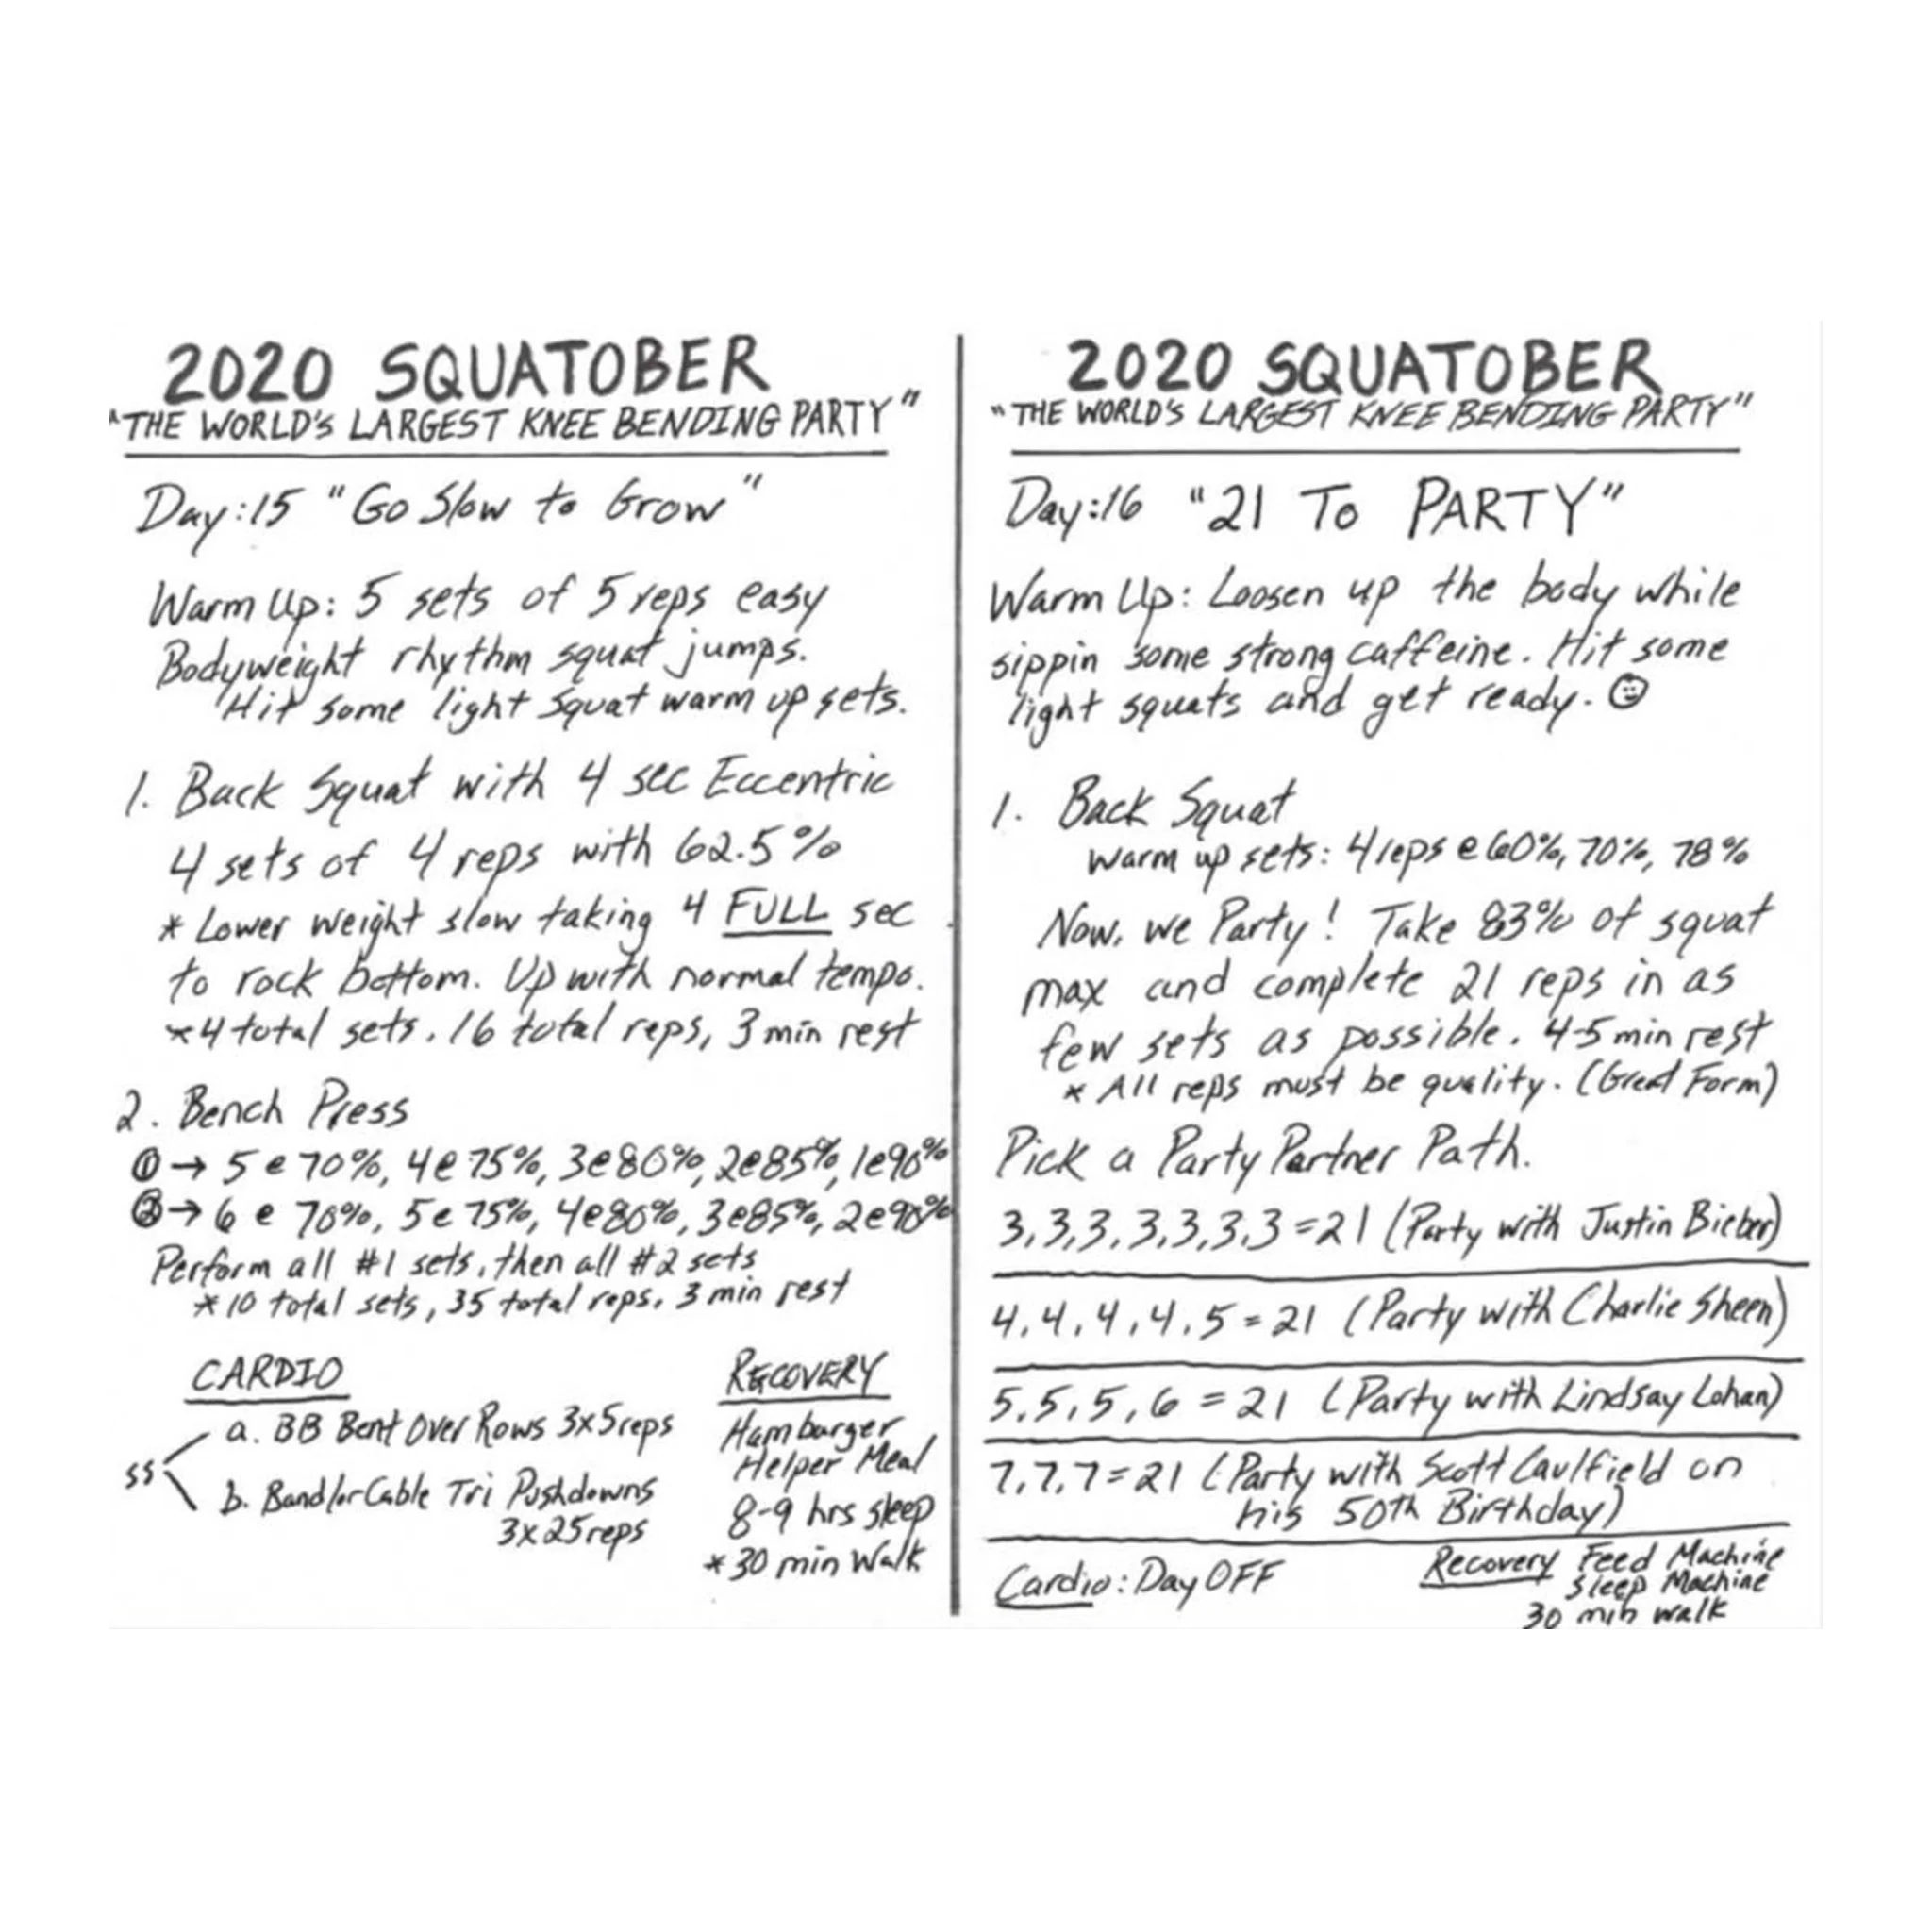 2020 SQUATOBER
"THE WORLD'S LARGEST KNEE BENDING PARTY"
Day:15 "Go Slow to Grow"
Warm Up: 5 sets of 5 reps easy
Bodyweight rhythm squat jumps.
Hit some light squat warm up sets.
1. Back Squat with 4 sec Eccentric
4 sets of 4 reps with 62.5%
* Lower weight slow taking 4 FULL sec
to rock bottom. Up with normal tempo.
*4 total sets. 16 total reps, 3 min rest
2. Bench Press
① → 5 e 70%, 4 e 75%, 3e80%, 2e85%, 1e90%
② → 6 e 70%, 5 e 75%, 4e80%, 3e85%, 2e90%
Perform all #1 sets, then all #2 sets
*10 total sets, 35 total reps, 3 min rest
CARDIO
ss
a. BB Bent Over Rows 3x5reps
b. Band/or Cable Tri Pushdowns
3x25reps
RECOVERY
Hamburger
Helper Meal
8-9 hrs sleep
*30 min Walk
2020 SQUATOBER
"THE WORLD'S LARGEST KNEE BENDING PARTY"
Day:16 "21 To PARTY"
Warm Up: Loosen up the body while
sippin some strong caffeine. Hit some
light squats and get ready. ☺
1. Back Squat
Warm up sets: 4 reps e 60%, 70%, 78%
Now, we Party! Take 83% of squat
max and complete 21 reps in as
few sets as possible. 4-5 min rest
* All reps must be quality. (Great Form)
Pick a Party Partner Path.
3,3,3,3,3,3,3 = 21 (Party with Justin Bieber)
4,4,4,4,5 = 21 (Party with Charlie Sheen)
5,5,5,6 = 21 (Party with Lindsay Lohan)
7,7,7 = 21 (Party with Scott Caulfield on
his 50th Birthday)
Cardio: Day OFF
Recovery Feed Machine
Sleep Machine
30 min walk